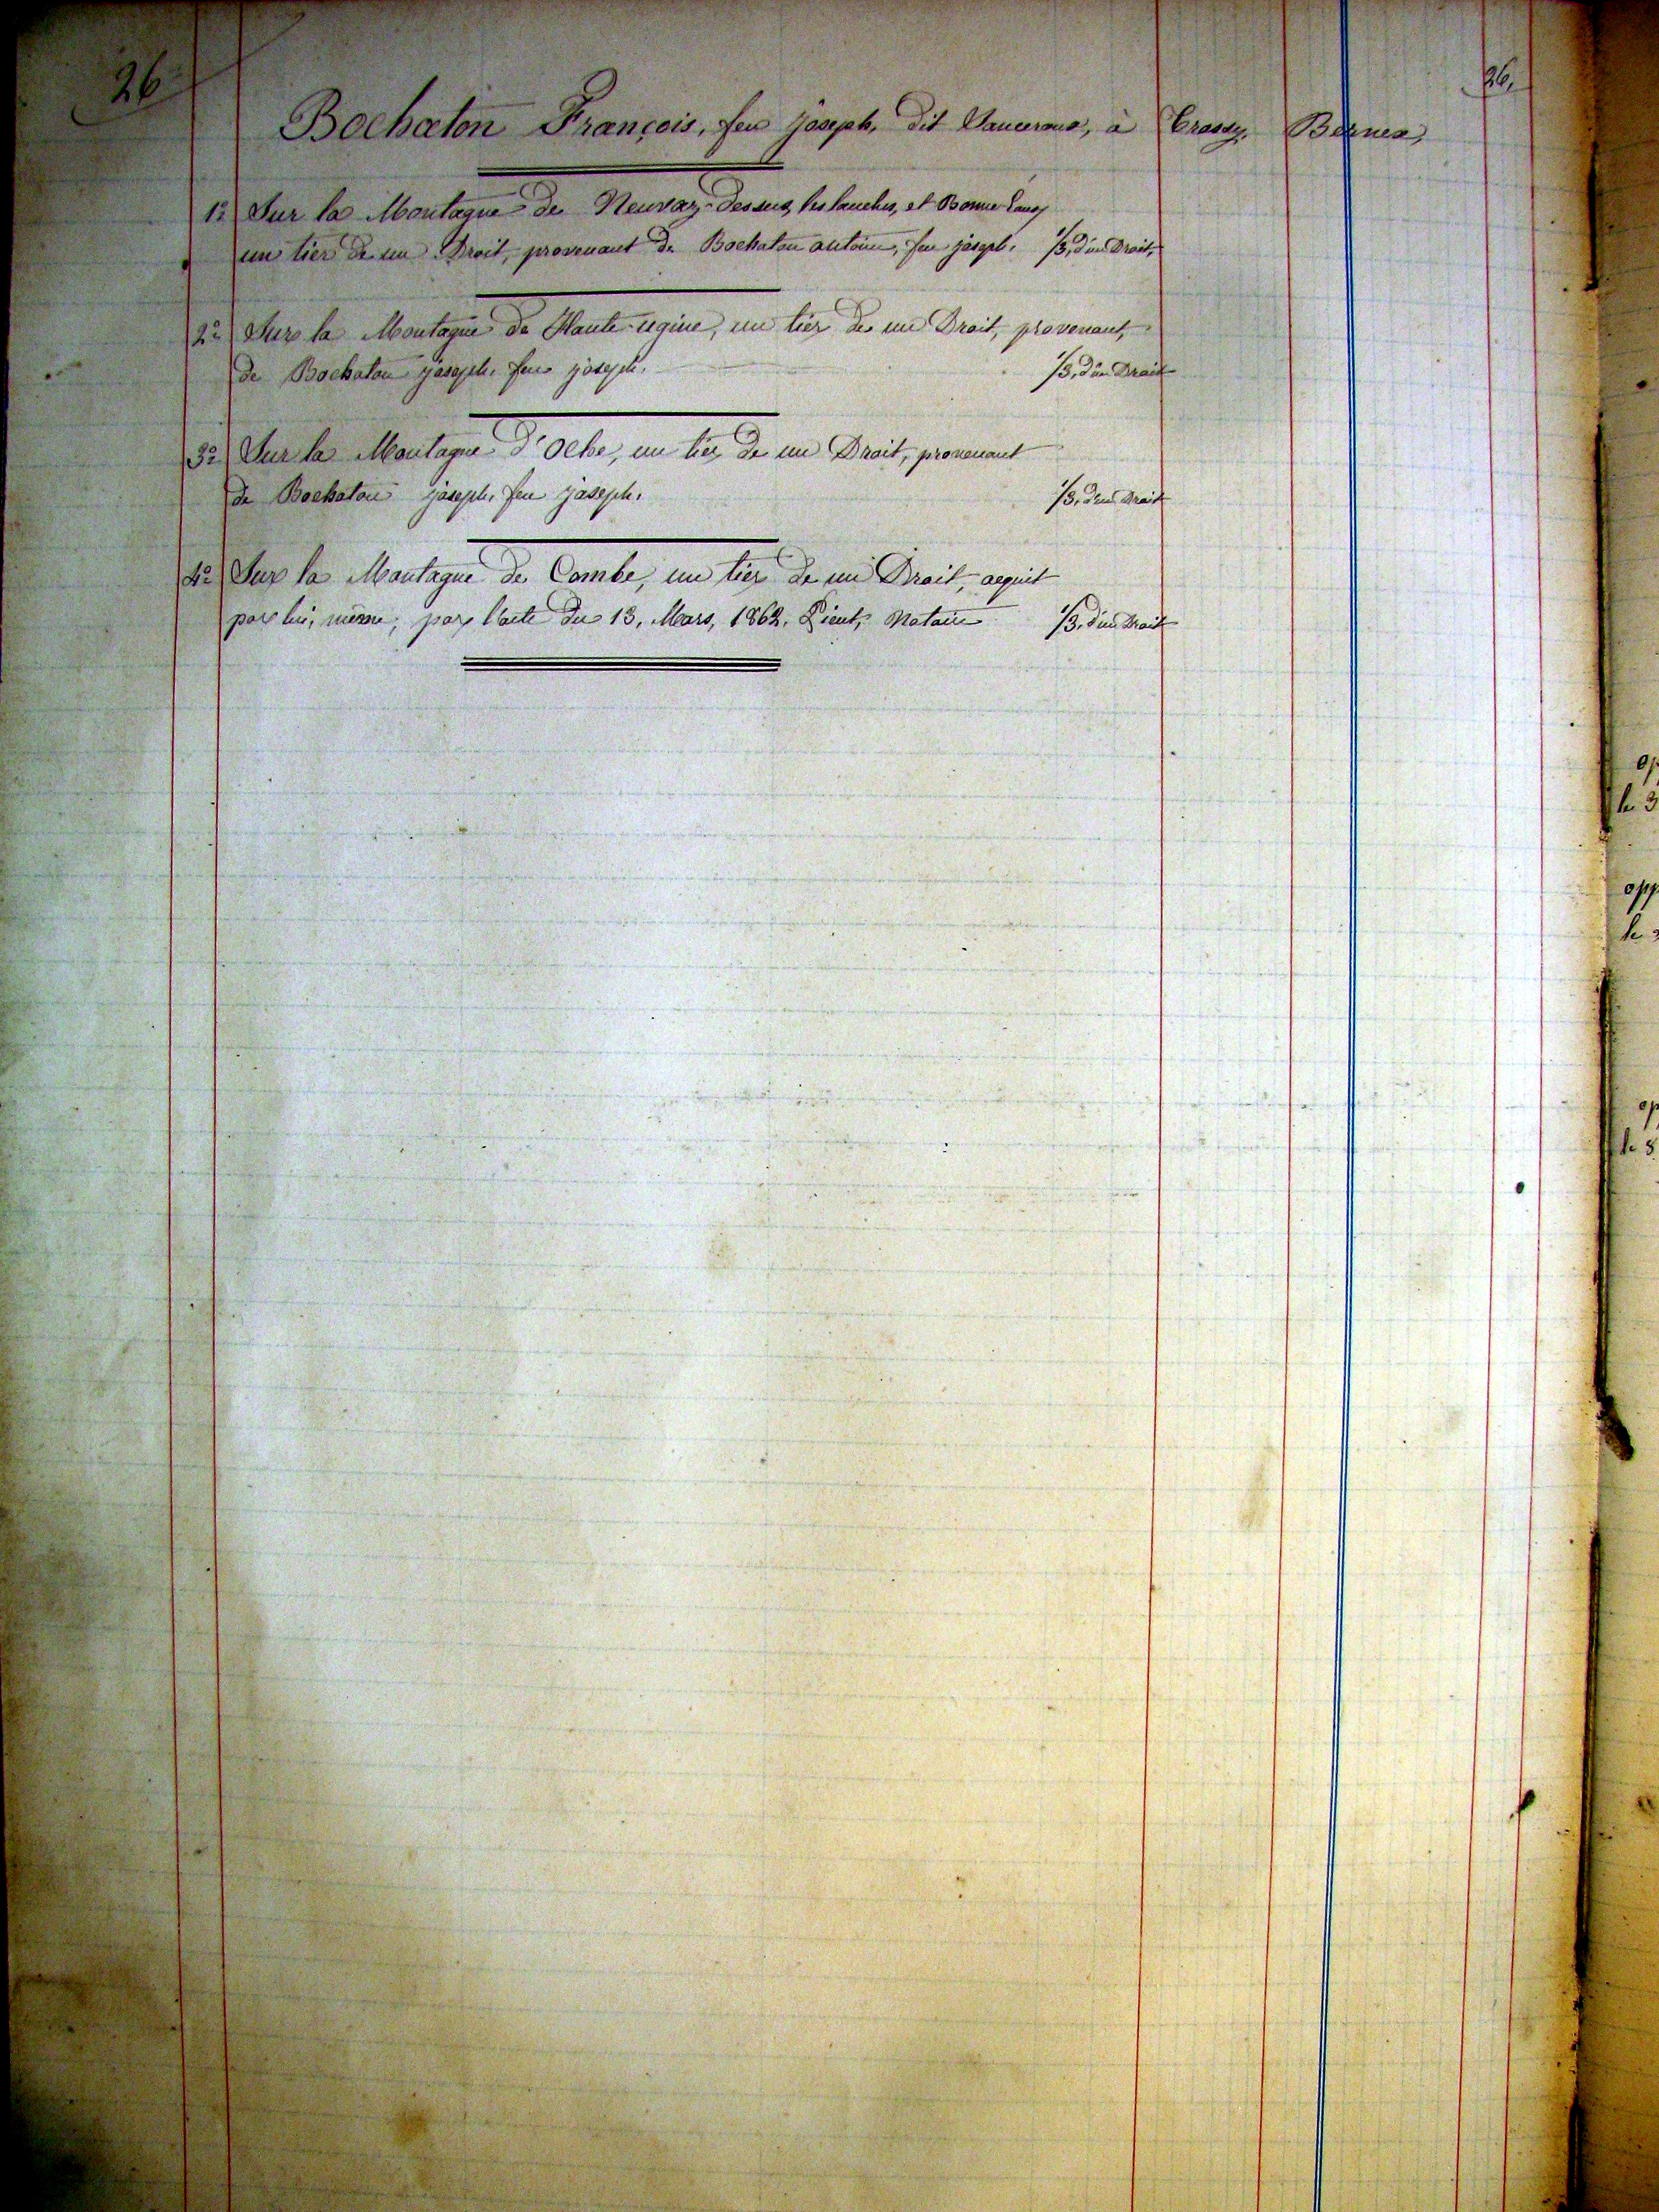 26
26,
Bochaton François, feu joseph, dit Vaucroux, à Crossy, Bernex,
1º Sur la Montagne de Neuvaz-dessus, les lanches, et Bonne Eau,
un tier de un Droit, provenant de Bochaton antoine, feu joseph. 1/3, d'un Droit,
2º Sur la Montagne de Haute-ugine, un tier de un Droit, provenant,
de Bochaton joseph, feu joseph. 1/3, d'un Droit
3º Sur la Montagne d'Oche, un tier de un Droit, provenant
de Bochaton joseph, feu joseph. 1/3, d'un Droit
4º Sur la Montagne de Combe, un tier de un Droit, aquit
par lui, même, par l'acte du 13, Mars, 1862. notaire 1/3, d'un Droit
op
le 3
opp
le
op
le 8